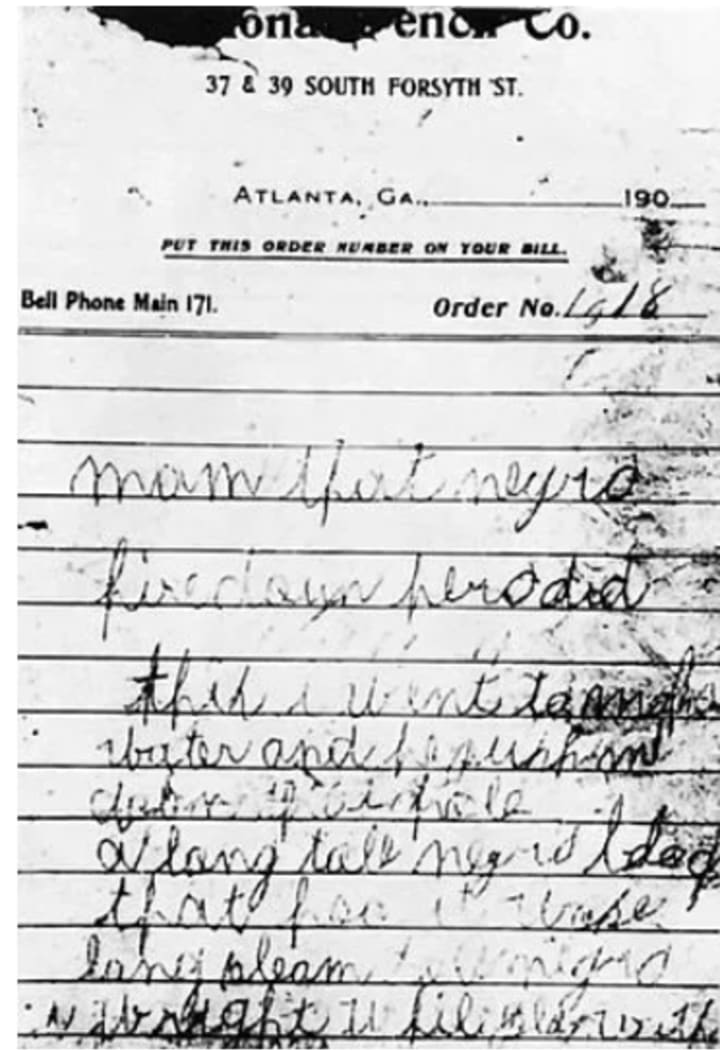 ona encil Co.
37 & 39 SOUTH FORSYTH ST.
ATLANTA, GA., 190
PUT THIS ORDER NUMBER ON YOUR BILL.
Bell Phone Main 171. Order No. 1018
mam that negro
hire down here did
this i went to
water and he push me
down that hole
a long tall negro black
that hoo it
long sleam tall negro
i while